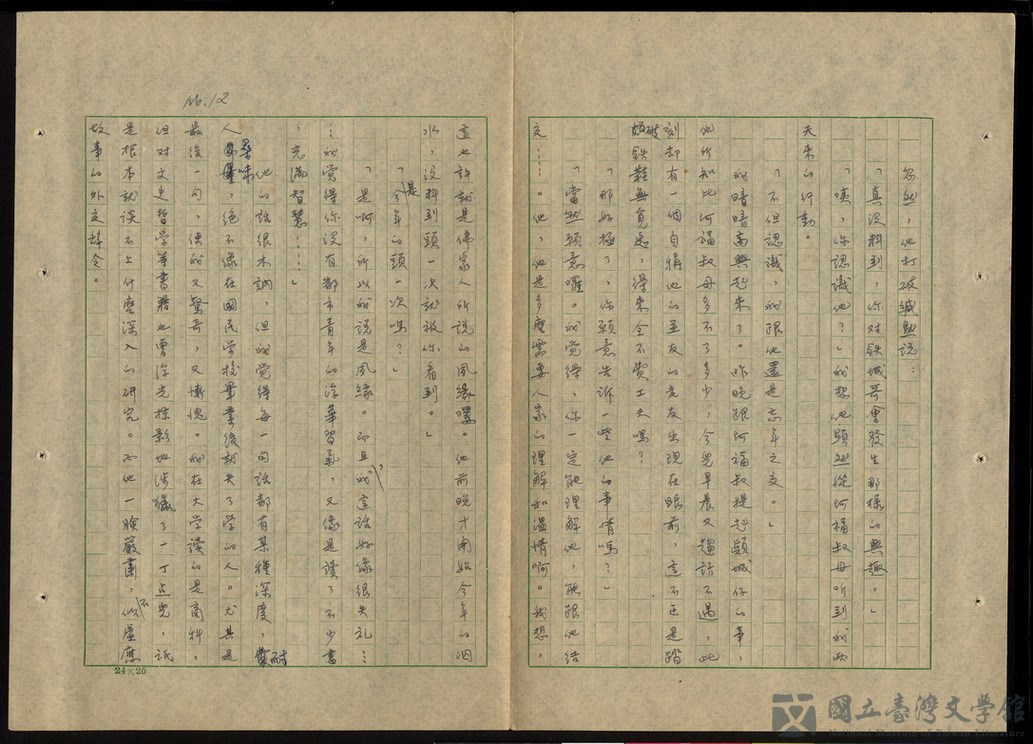 忽然，他打破緘默說：
「真沒料到，你對鉄城哥會發生那樣的興趣。」
「咦，你認識他？」我想他顯然從阿福叔母听到我兩
天來的行動。
「不但認識，我跟他還是忘年之交。」
我暗暗高興起來了。昨晚跟阿福叔提起穎城仔的事，
他所知比阿福叔母多不了多少，今兒早晨又趨訪不遇，此
刻却有一個自稱他的至友的老友出現在眼前，這不正是踏
破鉄鞋無覓處，得來全不費工夫嗎？
「那好極了，你願意告訴一些他的事情嗎？」
「當然願意囉。我覺得，你一定能理解他，能跟他結
交……。他，他是多麼需要人家的理解和溫情啊。我想，
這也許就是佛家人所說的夙緣嘍。他前晚才開始今年的洇
水，沒料到頭一次就被你看到。」
「是今年的頭一次嗎？」
「是啊，所以我說是夙緣。而且，我這話好像很失礼…
…我覺得你沒有都市青年的浮華習氣，又像是讀了不少書
，充滿智慧……」
他的話很木訥，但我覺得每一句話都有某種深度，耐
人尋味，絕不像在國民学校畢業後就失了学的人。尤其是
最後一句，使我又驚奇，又慚愧。我在大学讀的是商科，
但对文史哲学等書籍也曾浮光掠影地涉獵了一丁点兒，祇
是根本就談不上什麼深入的研究。而他一臉嚴肅，不似虛應
故事的外交辞令。
No.12
24×25
國立臺灣文學館
National Museum of Taiwan Literature